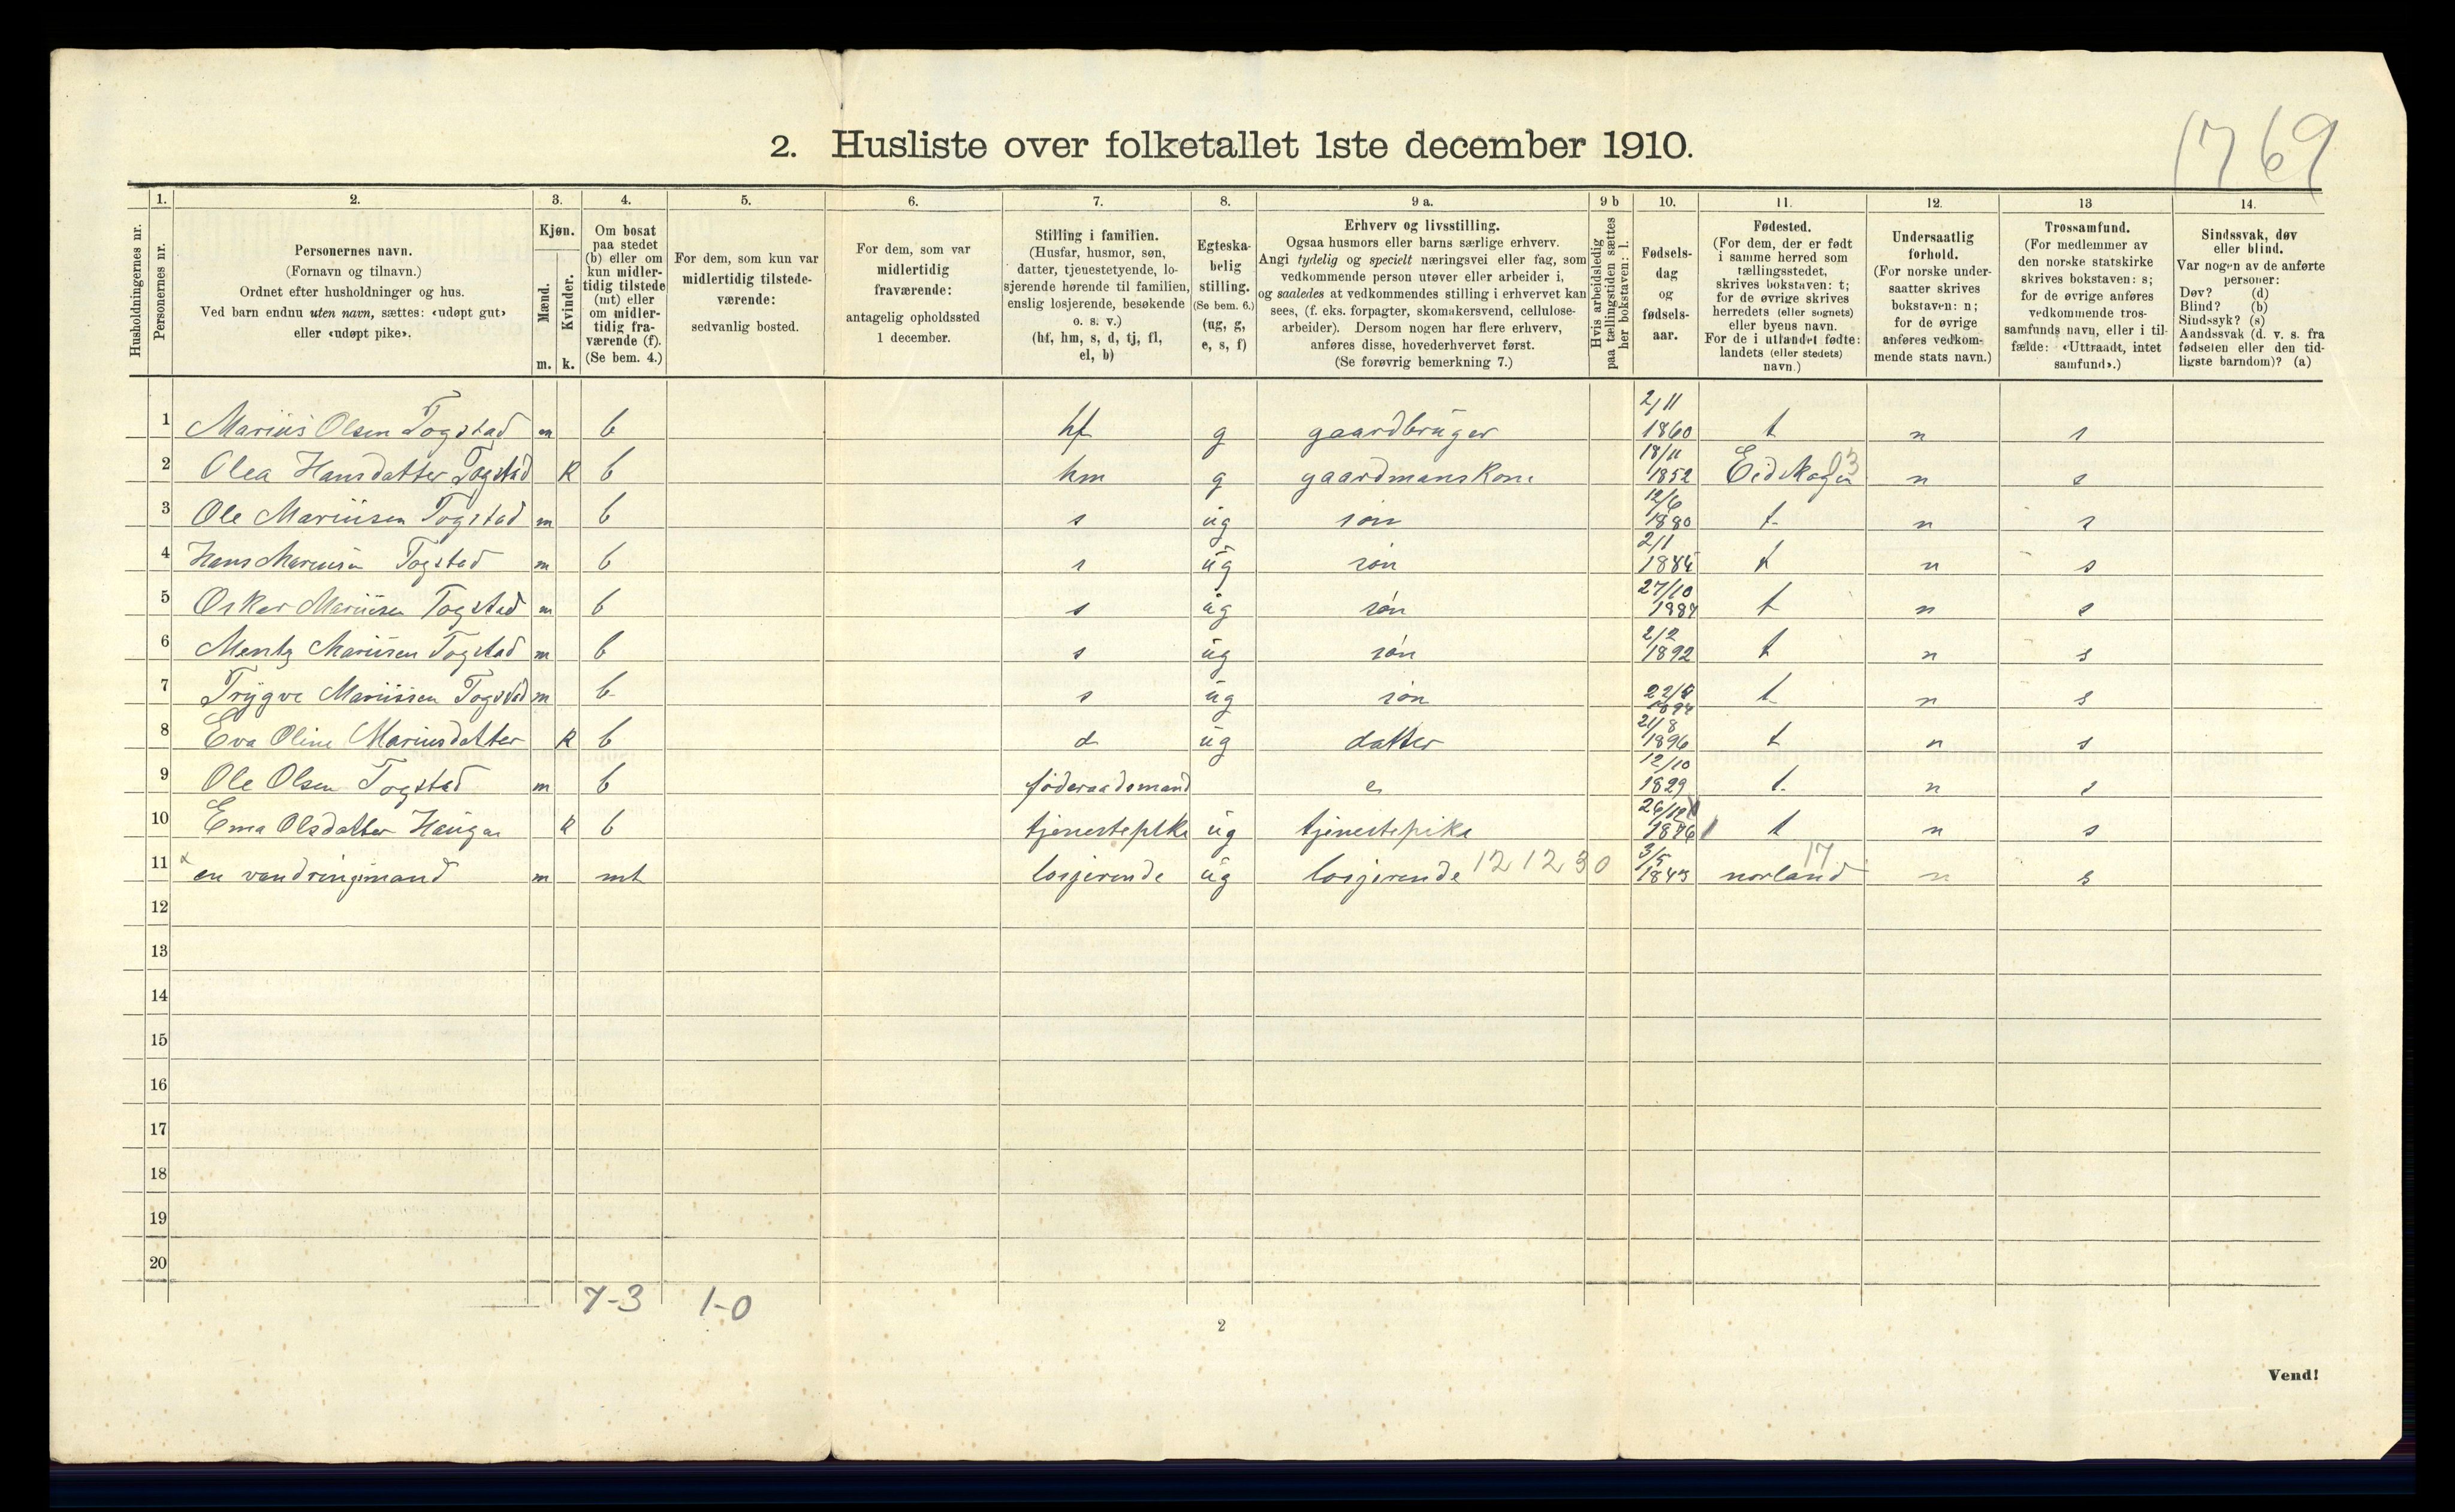 1769
2. Husliste over folketallet 1ste december 1910.
Husholdningernes nr.
1. Personernes nr.
2. Personernes navn.
(Fornavn og tilnavn.)
Ordnet efter husholdninger og hus.
Ved barn endnu uten navn, sættes: «udøpt gut»
eller «udøpt pike».
3. Kjøn.
Mænd. m.
Kvinder. k.
4. Om bosat
paa stedet
(b) eller om
kun midler-
tidig tilstede
(mt) eller
om midler-
tidig fra-
værende (f).
(Se bem. 4.)
5. For dem, som kun var
midlertidig tilstede-
værende:
sedvanlig bosted.
6. For dem, som var
midlertidig
fraværende:
antagelig opholdssted
1 december.
7. Stilling i familien.
(Husfar, husmor, søn,
datter, tjenestetyende, lo-
sjerende hørende til familien,
enslig losjerende, besøkende
o. s. v.)
(hf, hm, s, d, tj, fl,
el, b)
8. Egteska-
belig
stilling.
(Se bem. 6.)
(ug, g,
e, s, f)
9 a. Erhverv og livsstilling.
Ogsaa husmors eller barns særlige erhverv.
Angi tydelig og specielt næringsvei eller fag, som
vedkommende person utøver eller arbeider i,
og saaledes at vedkommendes stilling i erhvervet kan
sees, (f. eks. forpagter, skomakersvend, cellulose-
arbeider). Dersom nogen har flere erhverv,
anføres disse, hovederhvervet først.
(Se forøvrig bemerkning 7.)
9 b Hvis arbeidsledig
paa tællingstiden sættes
her bokstaven: l.
10. Fødsels-
dag
og
fødsels-
aar.
11. Fødested.
(For dem, der er født
i samme herred som
tællingsstedet,
skrives bokstaven: t;
for de øvrige skrives
herredets (eller sognets)
eller byens navn.
For de i utlandet fødte:
landets (eller stedets)
navn.)
12. Undersaatlig
forhold.
(For norske under-
saatter skrives
bokstaven: n;
for de øvrige
anføres vedkom-
mende stats navn.)
13 Trossamfund.
(For medlemmer av
den norske statskirke
skrives bokstaven: s;
for de øvrige anføres
vedkommende tros-
samfunds navn, eller i til-
fælde: «Uttraadt, intet
samfund».)
14. Sindssvak, døv
eller blind.
Var nogen av de anførte
personer:
Døv? (d)
Blind? (b)
Sindssyk? (s)
Aandssvak (d. v. s. fra
fødselen eller den tid-
ligste barndom)? (a)
1 Marius Olsen Togstad m b hf g gaardbruger 2/11 1860 t n s
2 Olea Hansdatter Togstad k b hm g gaardmanskone 18/11 1852 Eidskogen 03 n s
3 Ole Mariusen Togstad m b s ug søn 12/6 1880 t n s
4 Hans Mariusen Togstad m b s ug søn 2/1 t n s
5 Oskar Mariusen Togstad m b s ug søn 27/10 1887 t n s
6 Mentz Mariusen Togstad m b s ug søn 2/2 1892 t n s
7 Trygve Mariussen Togstad m b s ug søn 1894 t n s
8 Eva Oline Mariusdatter k b d ug datter 21/8 1896 t n s
9 Ole Olsen Togstad m b føderaadsmand e 12/10 1829 t n s
10 Ema Olsdatter Haugen k b tjenestepike ug tjenestepike t n s
11 en vandringsmand m mt losjerende ug losjerende 12 12 30 3/5 norland 17 n s
12
13
14
15
16
17
18
19
20
7-3 1-0
2
Vend!